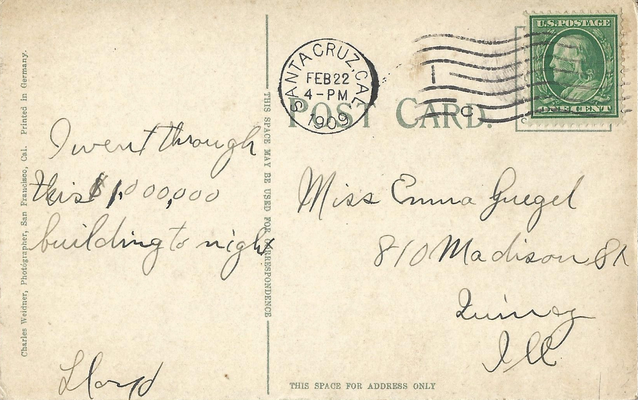 Charles Weidner, Photographer, San Francisco, Cal. Printed in Germany.
I went through
this $1,000,000
building to night
Lloyd
THIS SPACE MAY BE USED FOR CORRESPONDENCE
SANTA CRUZ, CAL.
FEB 22
4-PM
1909
U.S. POSTAGE
ONE CENT
POST CARD.
C
Miss Emma Guegel
810 Madison St
Quincy
Ill
THIS SPACE FOR ADDRESS ONLY